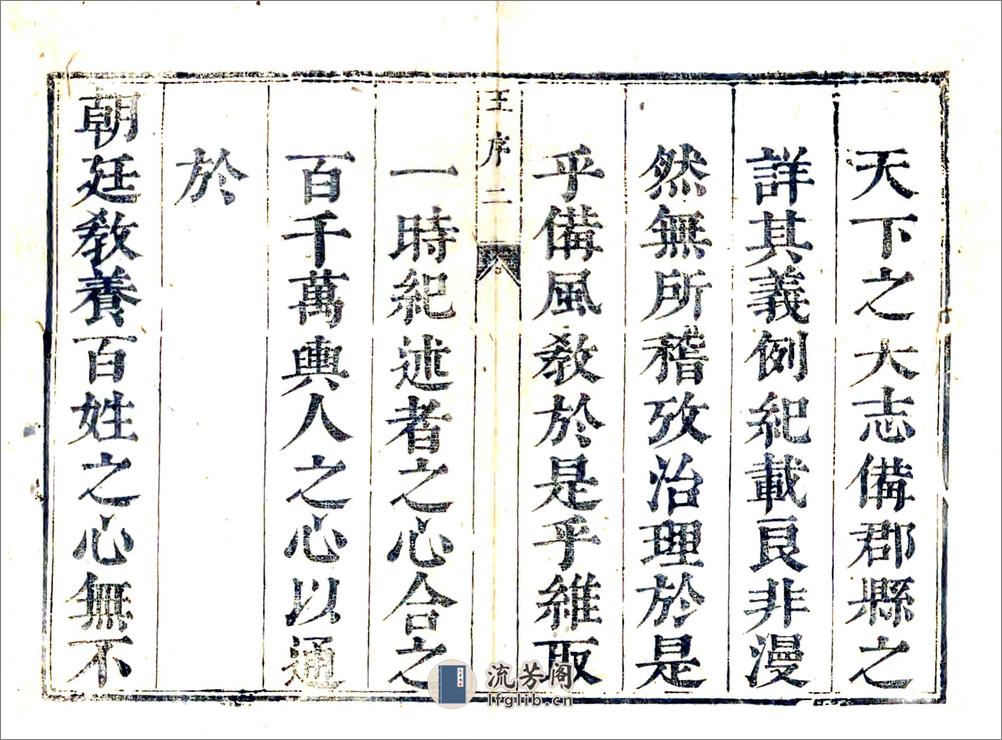 天下之大志備郡縣之
詳其義例紀載良非漫
然無所稽攷治理於是
乎備風敎於是乎維取
王序二
一時紀述者之心合之
百千萬輿人之心以通
於
朝廷敎養百姓之心無不
流芳阁
lfglib.cn